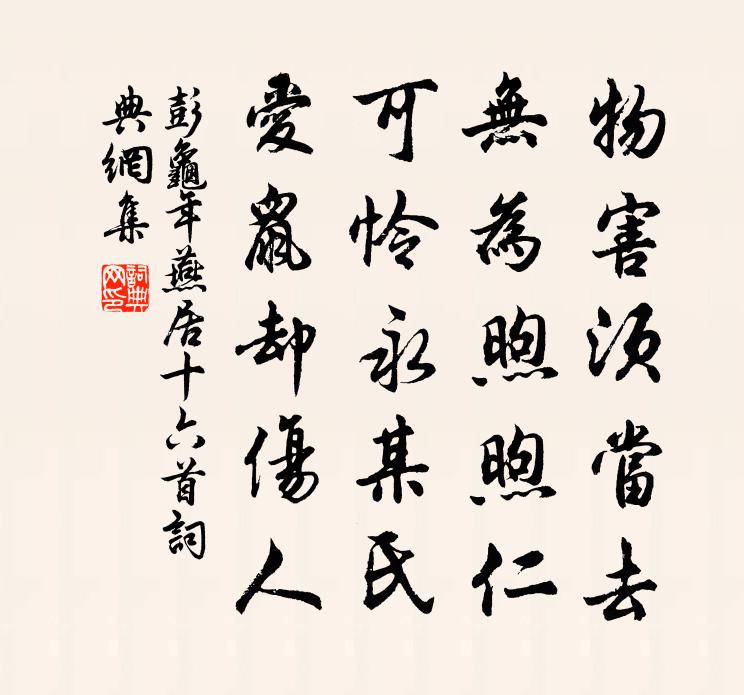 物害須當去
無為煦煦仁
可怜永某氏
愛鼠却傷人
彭龜年燕居十六首詞
典網集
詞典網印